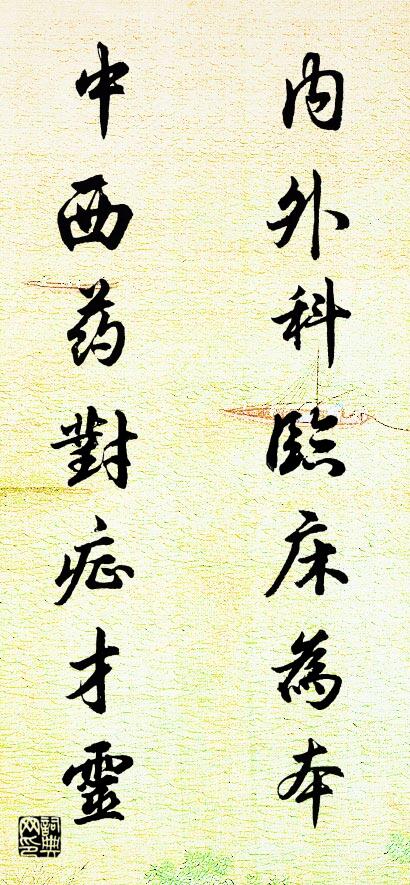 内外科臨床為本
中西药對症才靈
詞典网印